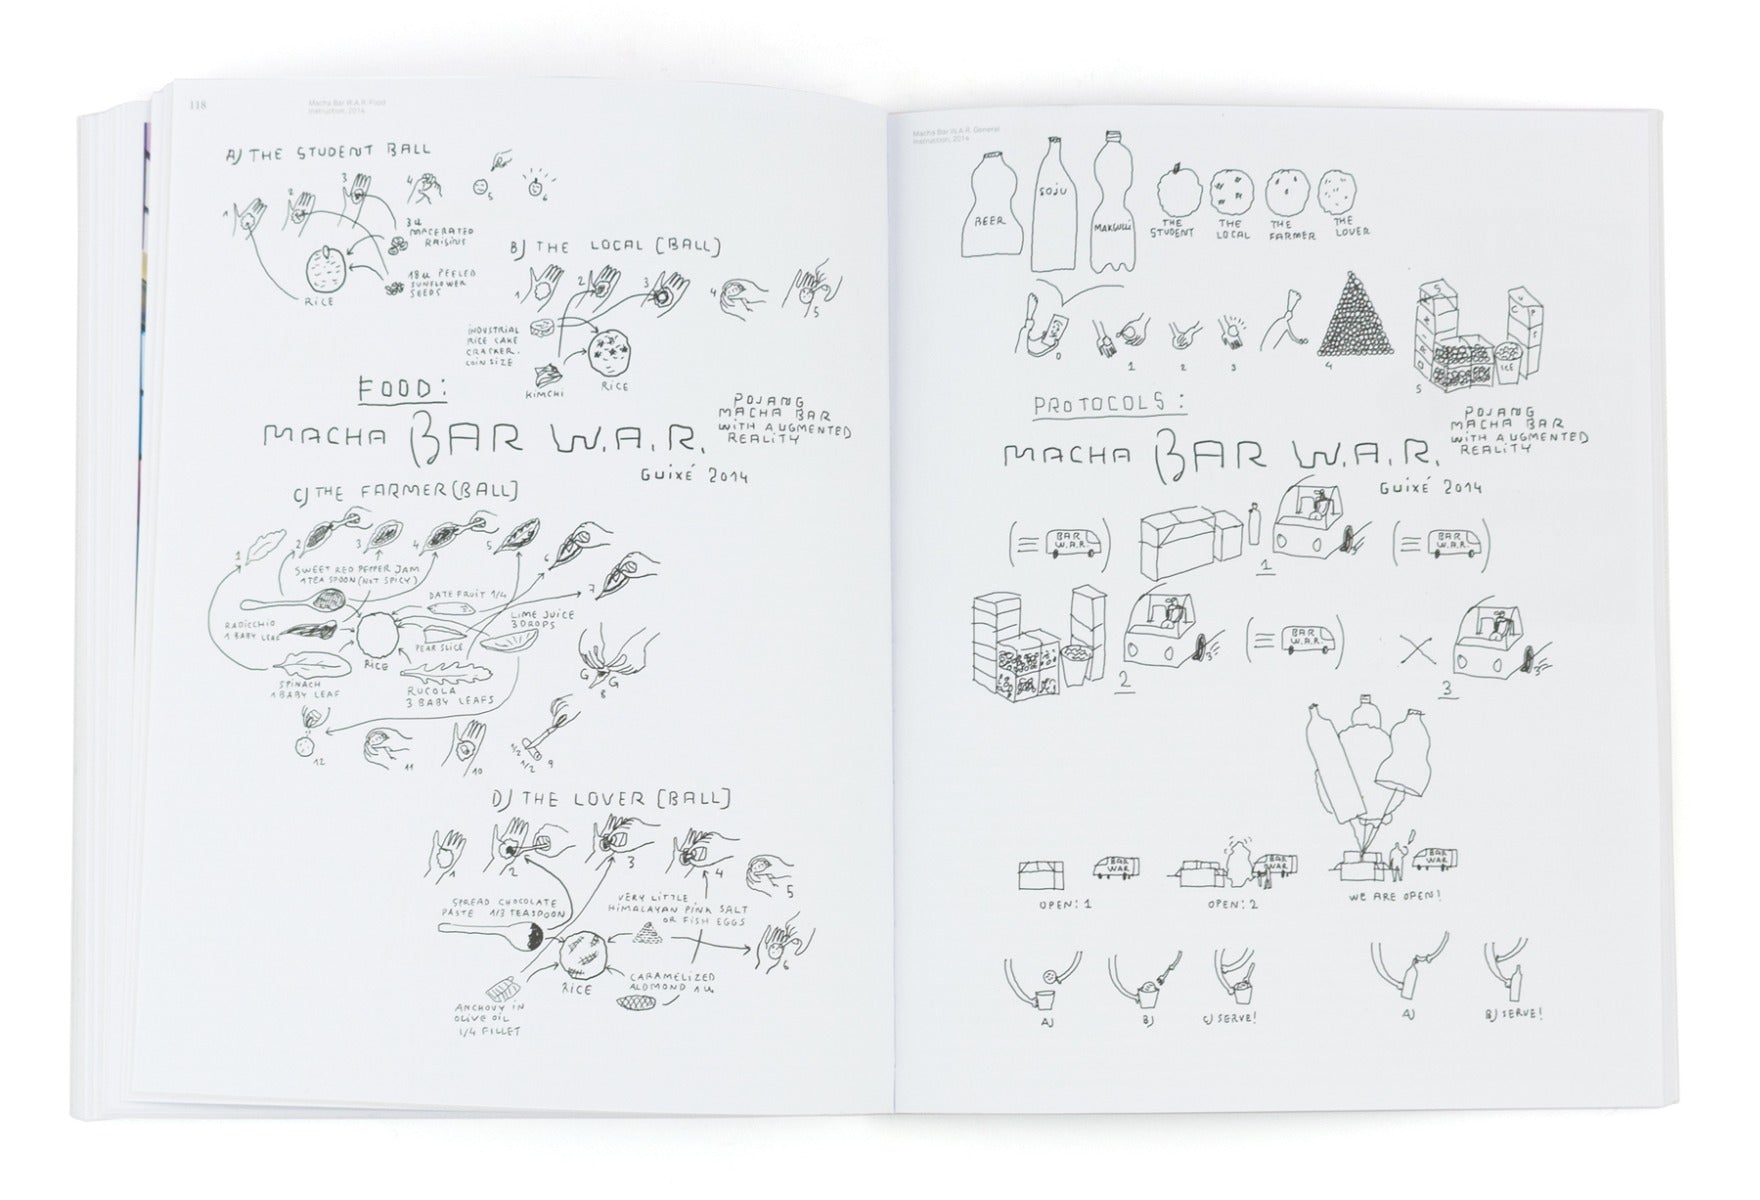 118
Macha Bar W.A.R. Food
Instruction, 2014
A) THE STUDENT BALL
1
2
3
4
5
6
3 u
MACERATED
RAISINS
18 u PEELED
SUNFLOWER
SEEDS
RICE
B) THE LOCAL (BALL)
1
2
3
4
5
INDUSTRIAL
RICE CAKE
CRACKER.
COIN SIZE
KIMCHI
RICE
FOOD:
MACHA BAR W.A.R.
POJANG
MACHA BAR
WITH AUGMENTED
REALITY
GUIXÉ 2014
C) THE FARMER (BALL)
1
2
3
4
5
6
7
SWEET RED PEPPER JAM
1 TEA SPOON (NOT SPICY)
DATE FRUIT 1/4
LIME JUICE
3 DROPS
RADICCHIO
1 BABY LEAF
PEAR SLICE
RICE
SPINACH
1 BABY LEAF
RUCOLA
3 BABY LEAFS
8
1/2
1/2
9
10
11
12
D) THE LOVER (BALL)
1
2
3
4
5
6
SPREAD CHOCOLATE
PASTE 1/3 TEASPOON
VERY LITTLE
HIMALAYAN PINK SALT
OR FISH EGGS
RICE
CARAMELIZED
ALDMOND 1 u.
ANCHOVY IN
OLIVE OIL
1/4 FILLET
Macha Bar W.A.R. General
Instruction, 2014
BEER
SOJU
MAKGULLI
THE
STUDENT
THE
LOCAL
THE
FARMER
THE
LOVER
0
1
2
3
4
5
ICE
PROTOCOLS:
MACHA BAR W.A.R.
POJANG
MACHA BAR
WITH AUGMENTED
REALITY
GUIXÉ 2014
BAR
W.A.R.
1
BAR
W.A.R.
2
BAR
W.A.R.
3
BAR
WAR
OPEN: 1
BAR
WAR
OPEN: 2
BAR
WAR
WE ARE OPEN!
A)
B)
C) SERVE!
A)
B) SERVE!